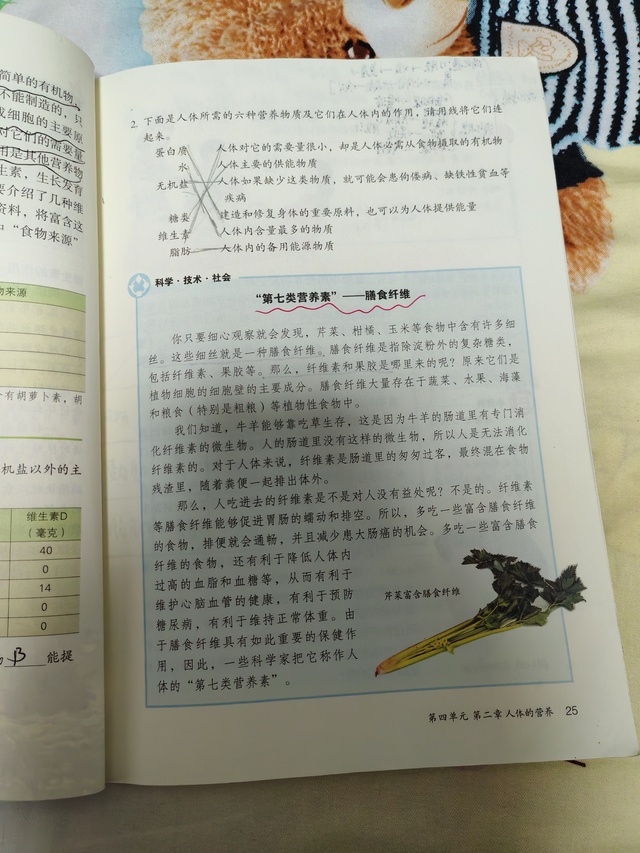 简单的有机物，
不能制造的，只
成细胞的主要原
对它们的需要量
用是其他营养物
生素，生长发育
要介绍了几种维
资料，将富含这
中“食物来源”
物来源
有胡萝卜素，胡
机盐以外的主
维生素D
（毫克）
40
0
14
0
0
B 能提
2. 下面是人体所需的六种营养物质及它们在人体内的作用，请用线将它们连
起来。
蛋白质 人体对它的需要量很小，却是人体必需从食物摄取的有机物
水 人体主要的供能物质
无机盐 人体如果缺少这类物质，就可能会患佝偻病、缺铁性贫血等
疾病
糖类 建造和修复身体的重要原料，也可以为人体提供能量
维生素 人体内含量最多的物质
脂肪 人体内的备用能源物质
科学·技术·社会
“第七类营养素”——膳食纤维
你只要细心观察就会发现，芹菜、柑橘、玉米等食物中含有许多细
丝。这些细丝就是一种膳食纤维。膳食纤维是指除淀粉外的复杂糖类，
包括纤维素、果胶等。那么，纤维素和果胶是哪里来的呢？原来它们是
植物细胞的细胞壁的主要成分。膳食纤维大量存在于蔬菜、水果、海藻
和粮食（特别是粗粮）等植物性食物中。
我们知道，牛羊能够靠吃草生存，这是因为牛羊的肠道里有专门消
化纤维素的微生物。人的肠道里没有这样的微生物，所以人是无法消化
纤维素的。对于人体来说，纤维素是肠道里的匆匆过客，最终混在食物
残渣里，随着粪便一起排出体外。
那么，人吃进去的纤维素是不是对人没有益处呢？不是的。纤维素
等膳食纤维能够促进胃肠的蠕动和排空。所以，多吃一些富含膳食纤维
的食物，排便就会通畅，并且减少患大肠癌的机会。多吃一些富含膳食
纤维的食物，还有利于降低人体内
过高的血脂和血糖等，从而有利于
维护心脑血管的健康，有利于预防
糖尿病，有利于维持正常体重。由
于膳食纤维具有如此重要的保健作
用，因此，一些科学家把它称作人
体的“第七类营养素”。
芹菜富含膳食纤维
第四单元 第二章 人体的营养 25